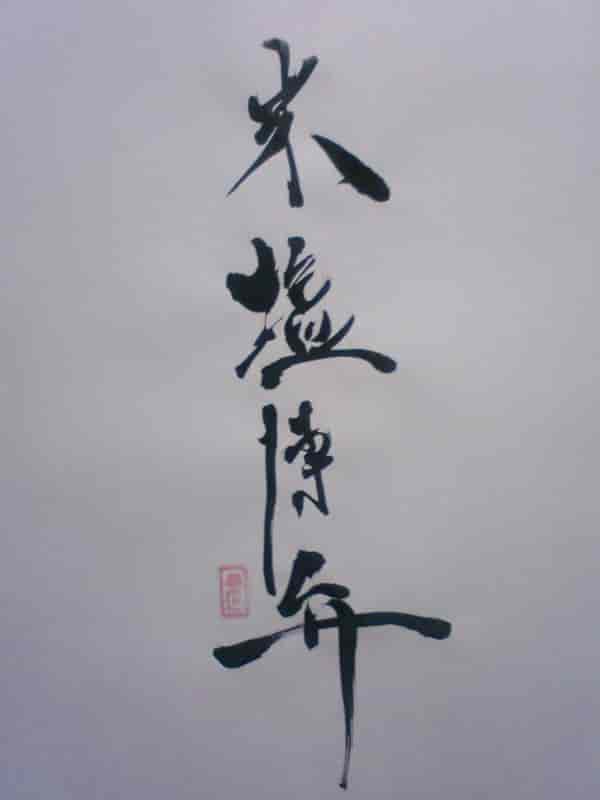 米塩博弁